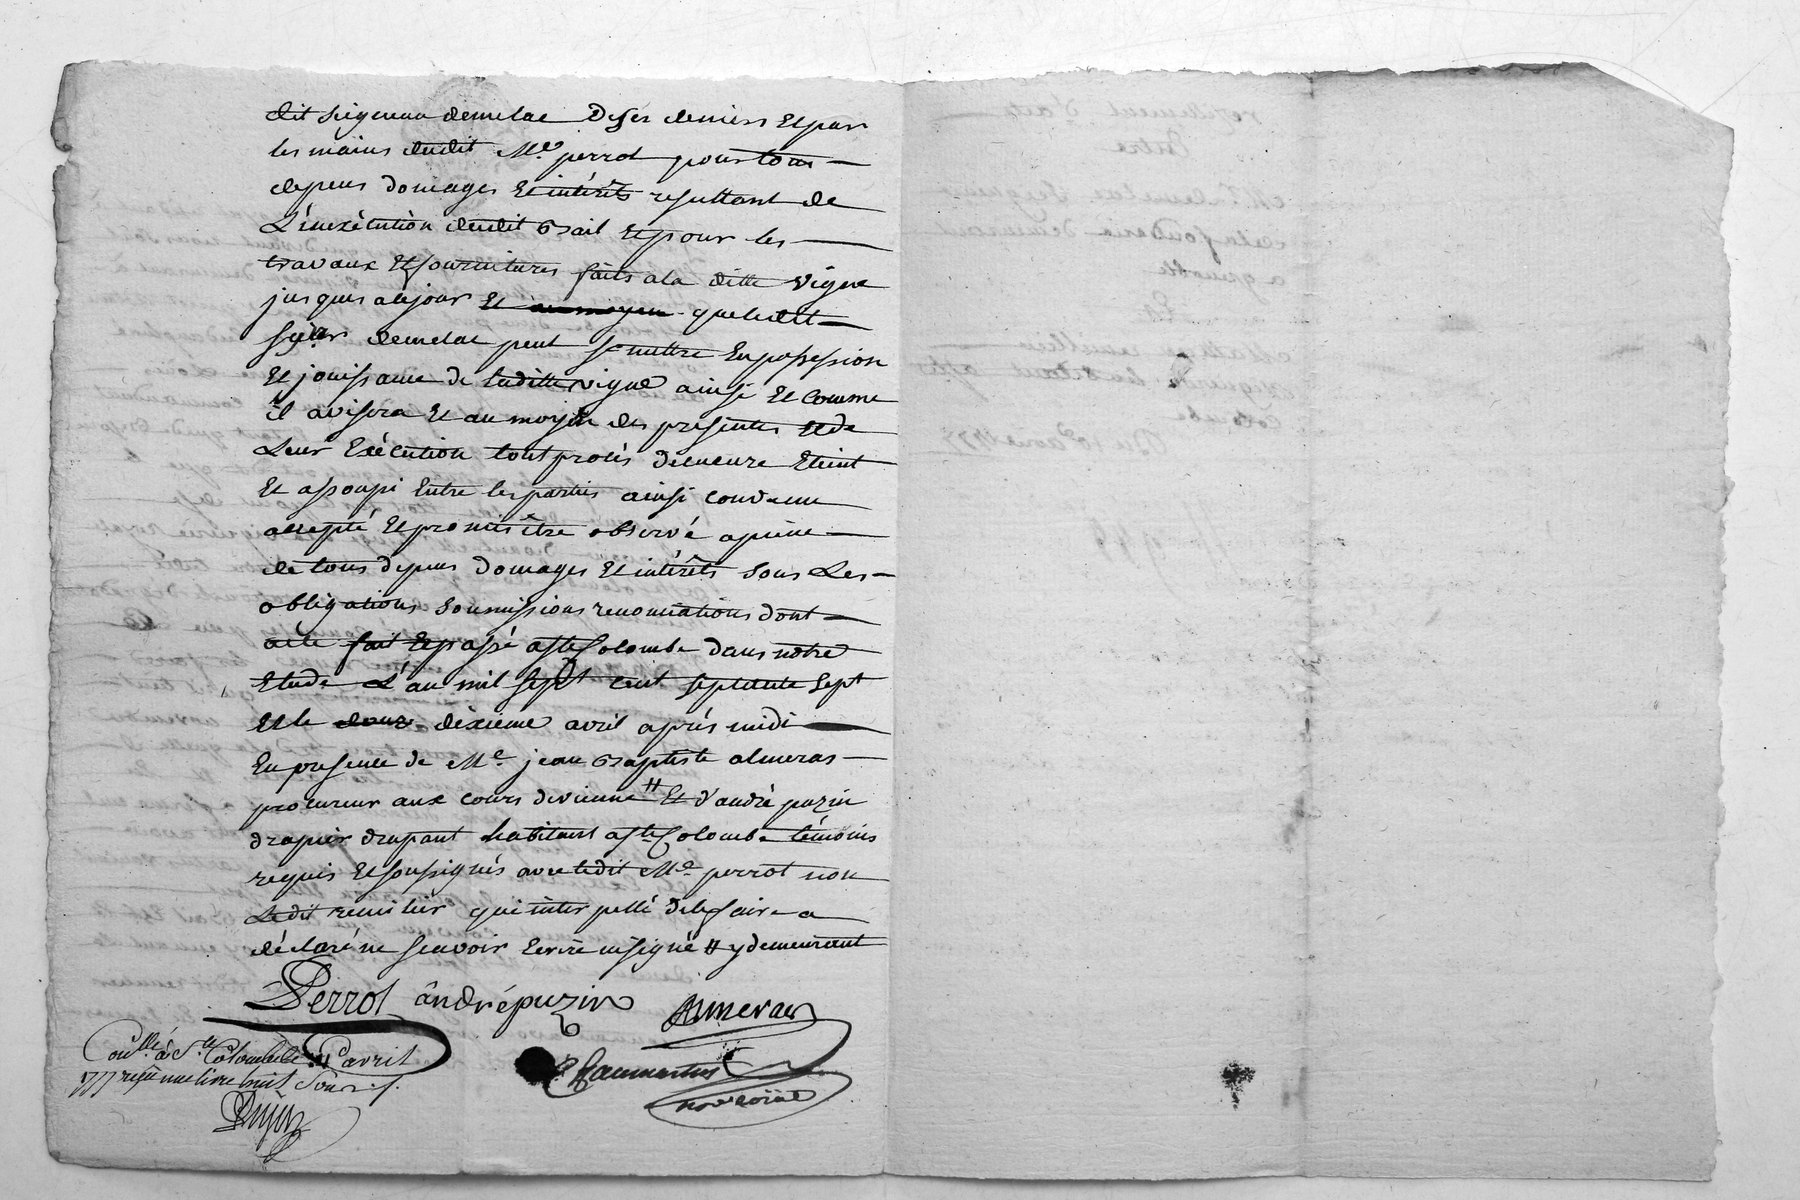 dit seigneur demelac Deses deniers Etpar
les mains dudit Me. perrot pour tous
depens domages Et intérêts resultant de
L'inexécution dudit Bail Etpour les
travaux Etfournitures faits ala ditte vigne
jusques acejour Et au moyen queledit
sgr demelac peut se mettre Enpossession
Et jouissance de laditte vigne ainsi Et comme
il avisera Et au moyen des presentes Et de
Leur Exécution tout procès demeure Eteint
Et assoupi Entre les parties ainsi convenu
accepté Etpromis être observé apeine
de tous depens domages Et intérêts sous Les
obligations soumissions renonciations dont
acte fait Etpassé aste Colombe dans notre
Etude L'an mil sept cent septante sept
Et le douz dixieme avril après midi
En presence de Me. jean Baptiste almeras
procureur aux cours devienne # Et d'andré puzin
drapier drapant habitant aste Colombe témoins
requis Etsoussignés avec ledit Me. perrot non
Ledit remilier qui interpellé delefaire a
déclaré ne scavoir Ecrire nisigné # y demeurant
Perrot andrépuzin Almeras
Conlle. à Ste Colombe le avril
1777 reçu une livre huit sous